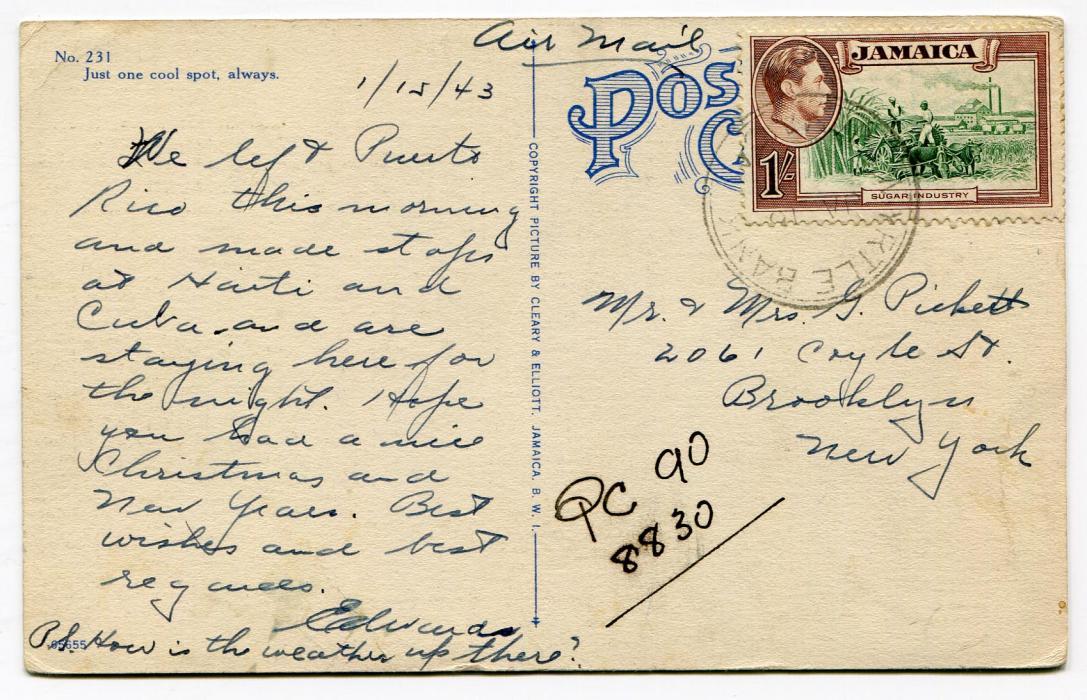 No. 231
Just one cool spot, always.
Air Mail
1/15/43
We left Puerto
Rico this morning
and made stops
at Haiti and
Cuba and are
staying here for
the night. Hope
you had a nice
Christmas and
New Years. Best
wishes and best
regards.
Edwards
P.S. How is the weather up there?
65655
COPYRIGHT PICTURE BY CLEARY & ELLIOTT. JAMAICA. B. W. I.
POS
C
JAMAICA
1/-
SUGAR INDUSTRY
Mr. & Mrs. G. Pickett
2061 Coyle St.
Brooklyn
New York
PC 90
8830